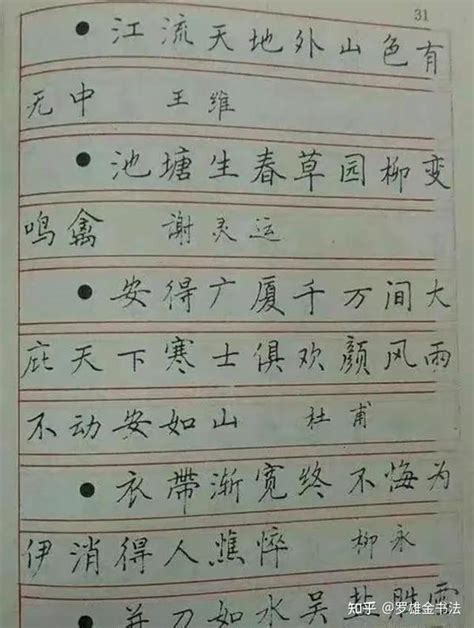 31
● 江流天地外山色有
无中 王维
● 池塘生春草园柳变
鸣禽 谢灵运
● 安得广厦千万间大
庇天下寒士俱欢颜风雨
不动安如山 杜甫
● 衣带渐宽终不悔为
伊消得人憔悴 柳永
● 并刀如水吴盐胜雪
知乎 @罗雄金书法